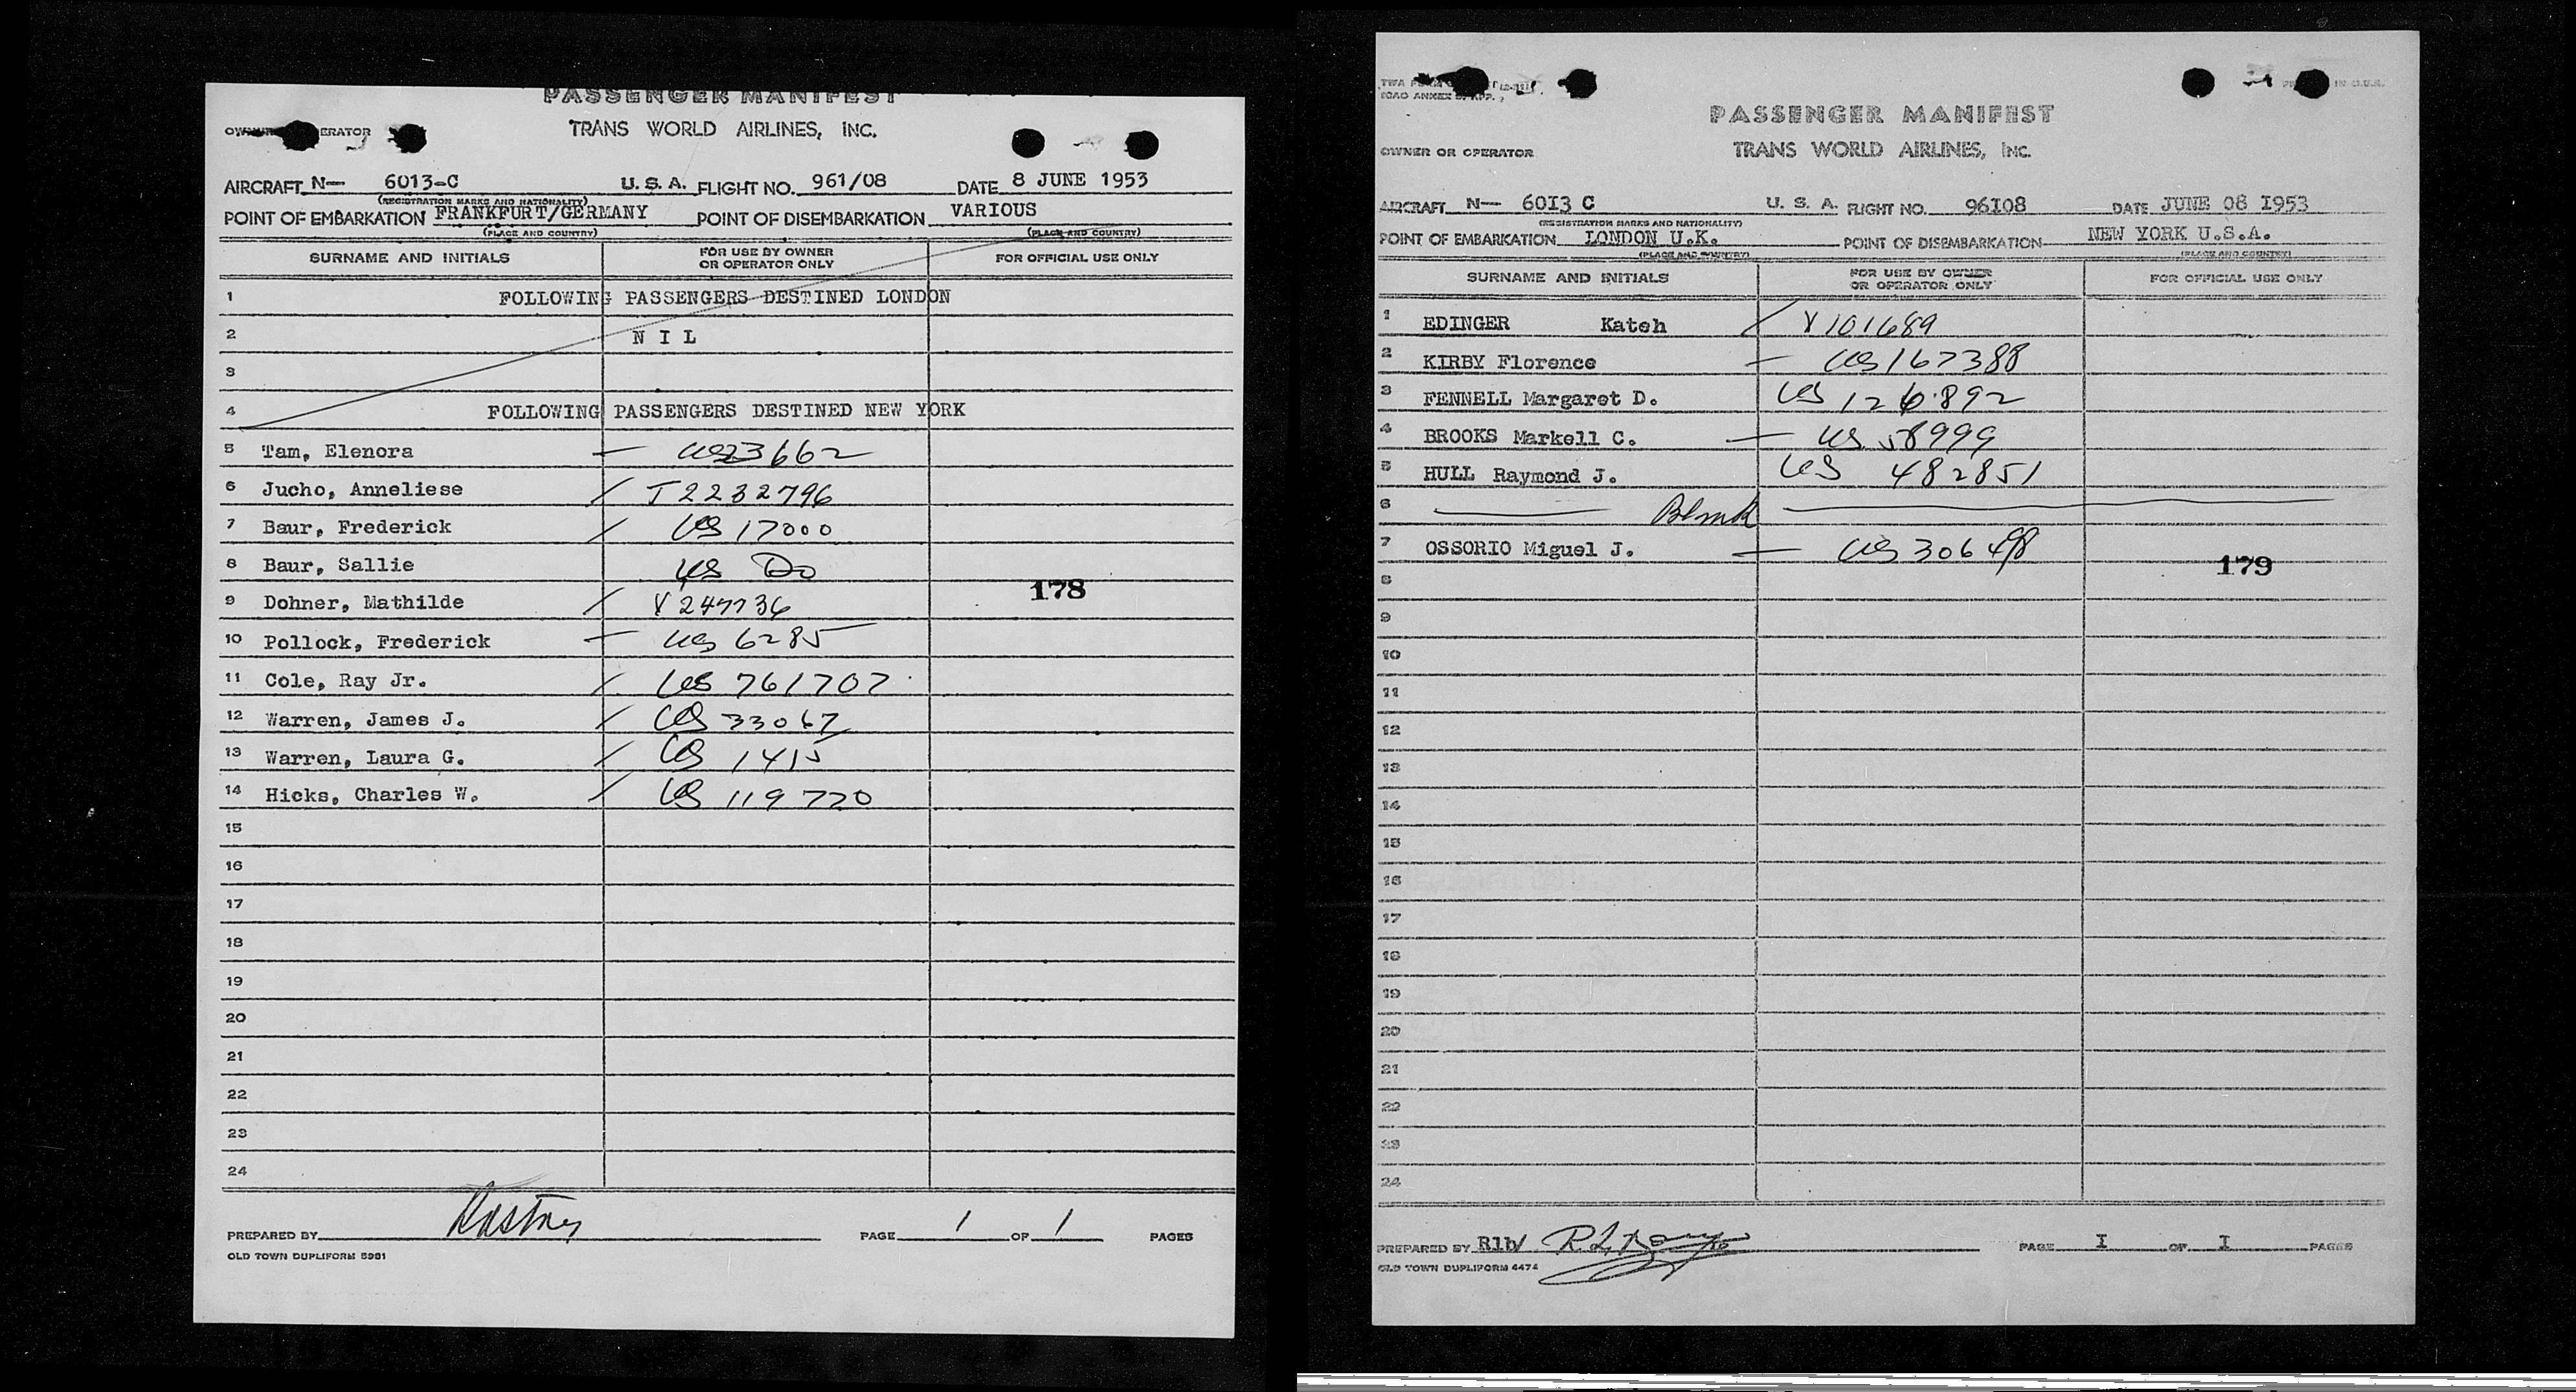 PASSENGER MANIFEST
TRANS WORLD AIRLINES, INC.
AIRCRAFT N— 6013-C U. S. A. FLIGHT NO. 961/08 DATE 8 JUNE 1953
(REGISTRATION MARKS AND NATIONALITY)
POINT OF EMBARKATION FRANKFURT/GERMANY POINT OF DISEMBARKATION VARIOUS
(PLACE AND COUNTRY) (PLACE AND COUNTRY)
SURNAME AND INITIALS FOR USE BY OWNER OR OPERATOR ONLY FOR OFFICIAL USE ONLY
1 FOLLOWING PASSENGERS DESTINED LONDON
2 N I L
3
4 FOLLOWING PASSENGERS DESTINED NEW YORK
5 Tam, Elenora — US23662
6 Jucho, Anneliese / I2232796
7 Baur, Frederick / US 17000
8 Baur, Sallie US Do
178
9 Dohner, Mathilde / V247736
10 Pollock, Frederick — US 6285
11 Cole, Ray Jr. / US 761707
12 Warren, James J. / US 33067
13 Warren, Laura G. / US 1415
14 Hicks, Charles W. / US 119720
15
16
17
18
19
20
21
22
23
24
PREPARED BY PAGE 1 OF 1 PAGES
OLD TOWN DUPLIFORM 5981
PASSENGER MANIFEST
OWNER OR OPERATOR TRANS WORLD AIRLINES, INC.
AIRCRAFT N— 6013 C U. S. A. FLIGHT NO. 96108 DATE JUNE 08 1953
(REGISTRATION MARKS AND NATIONALITY)
POINT OF EMBARKATION LONDON U.K. POINT OF DISEMBARKATION NEW YORK U.S.A.
(PLACE AND COUNTRY) (PLACE AND COUNTRY)
SURNAME AND INITIALS FOR USE BY OWNER OR OPERATOR ONLY FOR OFFICIAL USE ONLY
1 EDINGER Kateh / V101689
2 KIRBY Florence — US167388
3 FENNELL Margaret D. US 126892
4 BROOKS Markell C. — US 58999
5 HULL Raymond J. US 482851
6 Blank
7 OSSORIO Miguel J. — US306498
179
8
9
10
11
12
13
14
15
16
17
18
19
20
21
22
23
24
PREPARED BY Rlb/ PAGE I OF I PAGES
OLD TOWN DUPLIFORM 4474